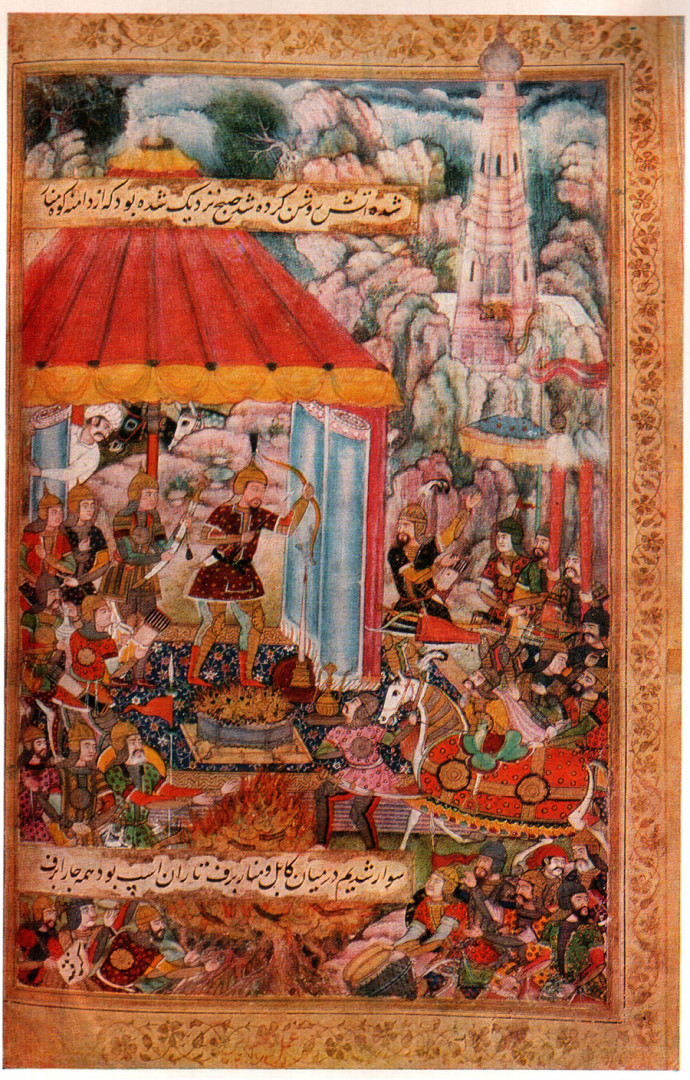 شده آتش روشن کرده شد صبح نزدیک شده بود که از دامنه کوه منار
سوار شدیم درمیان کابل و منار برف تا ران اسپ بود همه جا را برف